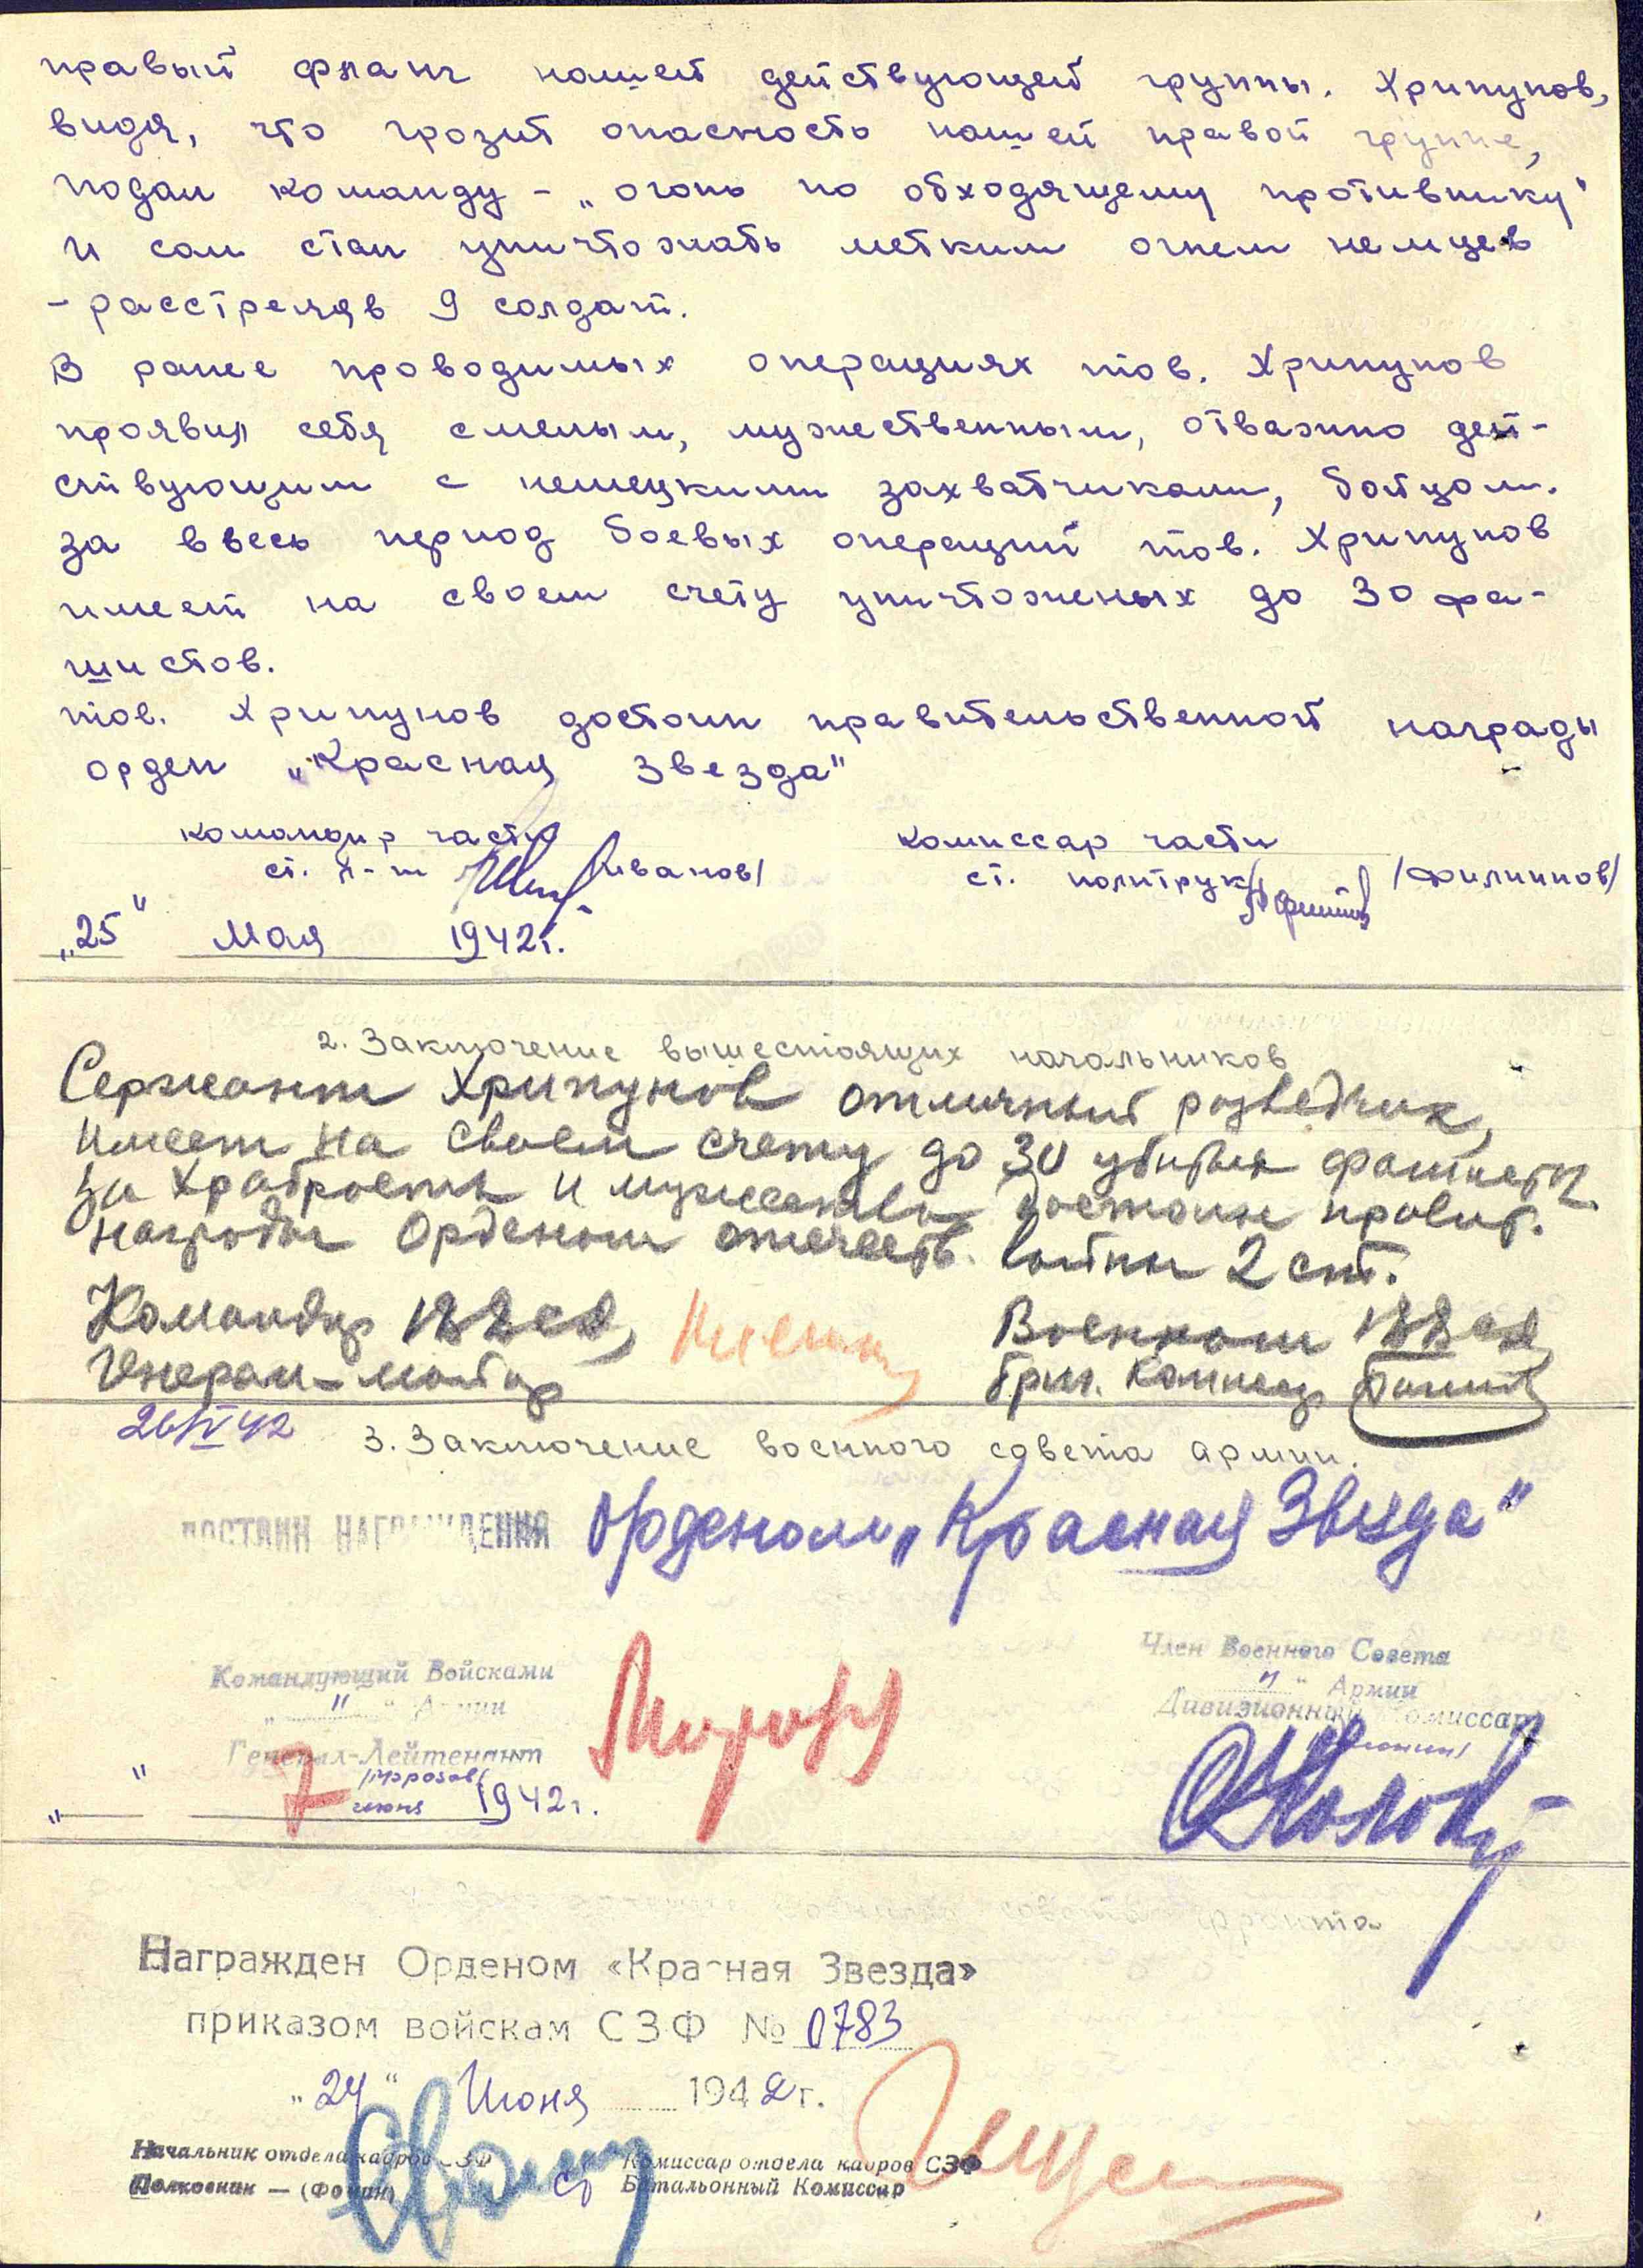 правый фланг нашей действующей группы. Хрипунов,
видя, что грозит опасность нашей правой группе,
подал команду – „огонь по обходящему противнику"
и сам стал уничтожать метким огнем немцев
– расстреляв 9 солдат.
В ранее проводимых операциях тов. Хрипунов
проявил себя смелым, мужественным, отважно дей-
ствующим с немецкими захватчиками, бойцом.
За ввесь период боевых операций тов. Хрипунов
имеет на своем счету уничтоженых до 30 фа-
шистов.
тов. Хрипунов достоин правительственной награды
орден „Красная Звезда"
командир части комиссар части
ст. л-т /Иванов/ ст. политрук /Филиппов/
„25" Мая 1942 г.
2. Заключение вышестоящих начальников
Сержант Хрипунов отличный разведчик,
имеет на своем счету до 30 убитых фашистов
за храбрость и мужество достоин правит.
награды Орденом отечеств. войны 2 ст.
Командир 188 сд, Военком 188 сд
Генерал-майор бриг. комиссар
26/IV 42
3. Заключение военного совета армии.
ДОСТОИН НАГРАЖДЕНИЯ Орденом „Красная Звезда"
Командующий Войсками
„ 11 " Армии
Генерал-Лейтенант
/Морозов/
„ " 7 июня 1942 г.
Член Военного Совета
11 " Армии
Дивизионный Комиссар
военного совета фронта
Награжден Орденом «Красная Звезда»
приказом войскам СЗФ № 0783
„24" Июня 1942 г.
Начальник отдела кадров СЗФ Комиссар отдела кадров СЗФ
Полковник — (Фомин) Ст Батальонный Комиссар